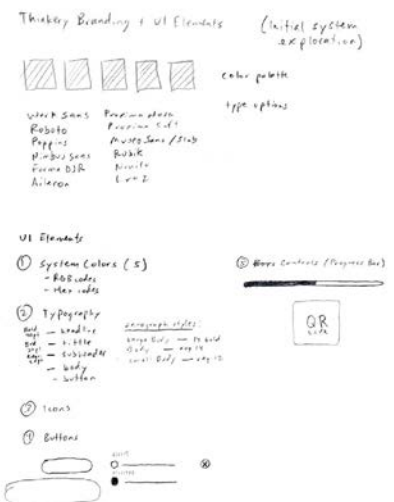 Thinkery Branding + UI Elements
(initial system
exploration)
color palette
type options
Work Sans
Roboto
Poppins
Nimbus Sans
Forma DJR
Aileron
Proxima Nova
Proxima Soft
Museo Sans / Slab
Rubik
Nunito
UI Elements
① System Colors (5)
- RGB codes
- Hex codes
② Typography
— headline
— title
— subheader
— body
— button
paragraph styles:
Large Body — 14 bold
Body — reg 14
small Body — reg 12
③ Icons
④ Buttons
⑤ Controls (Progress Bar)
QR
code